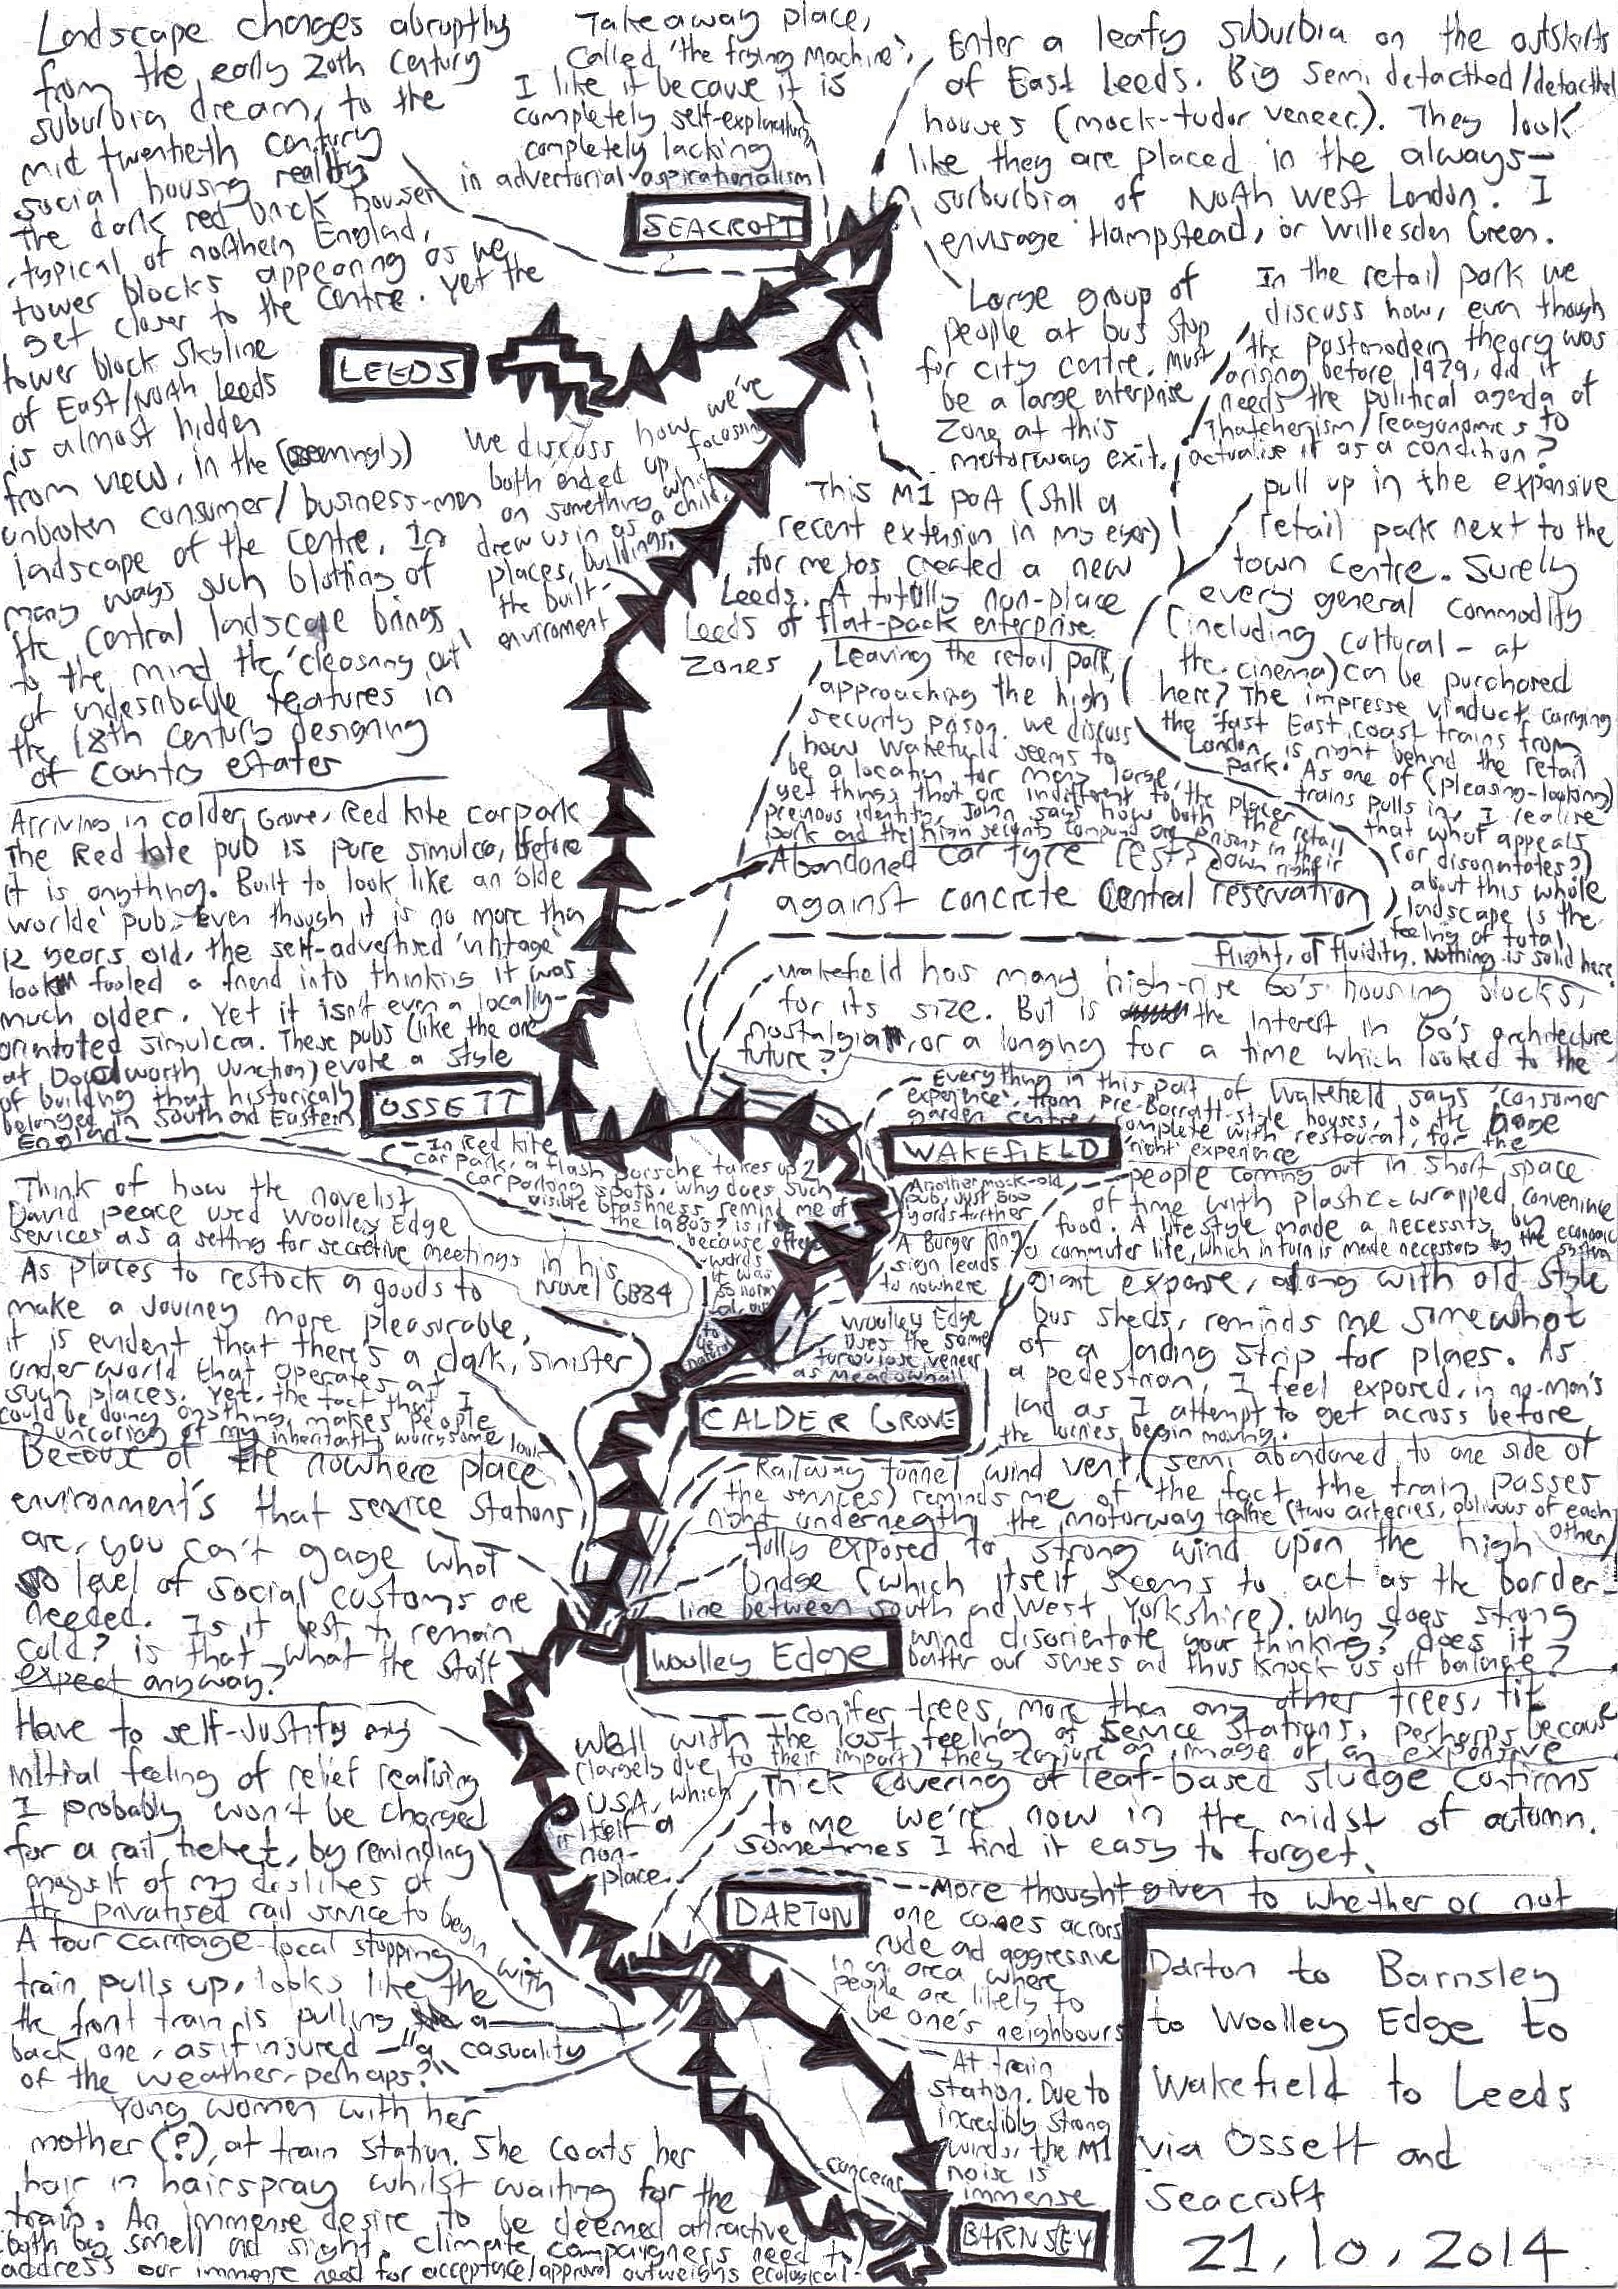 Landscape changes abruptly
from the early 20th century
suburbia dream, to the
mid twentieth century
social housing reality
the dark red brick houses
typical of northern England,
tower blocks appearing as we
get closer to the centre. Yet the
tower block skyline
of East/North Leeds
is almost hidden
from view, in the (seemingly)
unbroken consumer/business-man
landscape of the centre. In
many ways such blotting of
the central landscape brings
to the mind the 'cleasning out'
of undesribable features in
the 18th century designing
of country estates
Takeaway place,
called 'the frying machine',
I like it because it is
completely self-explanatory
completely lacking
in advertorial aspirationalism
Enter a leafy suburbia on the outskirts
of East Leeds. Big semi detatched/detatched
houses (mock-tudor veneer). They look
like they are placed in the always-
surburbia of North West London. I
envisage Hampstead, or Willesden Green.
SEACROFT
LEEDS
Large group of
people at bus stop
for city centre. Must
be a large enterprise
zone at this
motorway exit.
In the retail park we
discuss how, even though
the postmodern theory was
arising before 1979, did it
needs the political agenda of
Thatcherism/reaganomics to
actualise it as a condition?
We discuss how we've
both ended up focusing
on something which
drew us in as a child.
places, buildings,
the built-
enviroment
This M1 part (still a
recent extension in my eyes)
for me has created a new
Leeds. A totally non-place
Leeds of flat-pack enterprise
zones
pull up in the expansive
retail park next to the
town centre. Surely
every general commodity
(including cultural - at
the cinema) can be purchased
here? The impresse viaduct, carrying
the fast East coast trains from
London, is right behind the retail
park. As one of (pleasing-looking)
trains pulls in, I realise
that what appeals
(or disorientates?)
about this whole
landscape is the
feeling of total
flight, of fluidity. Nothing is solid here.
Leaving the retail park,
approaching the high
security prison, we discuss
how Wakefield seems to
be a location for many large,
yet things that are indifferent to the places
previous identity. John says how both the retail
park and the high security compound are prisons in their
own right
Abandoned car tyre rests
against concrete central reservation
Arriving in Calder Grove, Red Kite carpark
The Red Kite pub is pure simulcra, before
it is anything. Built to look like an 'olde
worlde' pub - even though it is no more than
12 years old, the self-advertised 'vintage'
look fooled a friend into thinking it was
much older. Yet it isn't even a locally-
orientated simulcra. These pubs (like the one
at Dodworth Junction) evoke a style
of building that historically
belonged in South and Eastern
England
Wakefield has many high-rise 60's housing blocks,
for its size. But is the interest in 60's architecture
nostalgia, or a longing for a time which looked to the
future?
OSSETT
Everything in this part of Wakefield says 'consumer
experience', from pre-Barratt-style houses, to the
garden centre, complete with restaurat, for the
'right' experience
WAKEFIELD
In Red Kite
car park, a flash porsche takes up 2
car parking spots. Why does such
visible brashness remind me of
the 1980s? is it
because
words
it was
so
Another mock-old
pub, just 500
yards further
A Burger King
sign leads
to nowhere
people coming out in short space
of time with plastic-wrapped convenience
food. A lifestyle made a necessity by
commuter life, which in turn is made necessary by the economic
system
Think of how the novelist
David Peace used Woolley Edge
services as a setting for secretive meetings in his
novel GB84
As places to restock a goods to
make a journey more pleasurable,
it is evident that there's a dark, sinister
under world that operates at
such places. Yet, the fact that I
could be doing anything, makes people
uncaring of my inheritantly worrysome look
giant expanse, along with old style
bus sheds, reminds me somewhat
of a lading strip for planes. As
a pedestrian, I feel exposed, in no-man's
land as I attempt to get across before
the lorries begin moving.
Woolley Edge
uses the same
turquoise veneer
as meadowhall
CALDER GROVE
Because of the nowhere place
environment's that service stations
are, you can't gage what
level of social customs are
needed. Is it best to remain
cold? is that what the staff
expect anyway?
Railway tunnel wind vent (semi abandoned to one side of
the services) reminds me of the fact the train passes
right underneath the motorway traffic (two arteries, oblivous of each
other)
fully exposed to strong wind upon the high
bridge (which itself seems to act as the border-
line between South and West Yorkshire). Why does strong
wind disorientate your thinking? does it
batter our senses and thus knock us off balance?
Woolley Edge
Conifer trees, more than any other trees, fit
well with the lost feeling of service stations. perharps because
(largely due to their import) they conjure an image of an expansive
USA, which
itself a
non-
place
Have to self-justify my
initial feeling of relief realising
I probably won't be charged
for a rail ticket, by reminding
myself of my dislikes of
the privatised rail service to begin
with
Thick covering of leaf-based sludge confirms
to me we're now in the midst of autumn.
Sometimes I find it easy to forget.
DARTON
More thought given to whether or not
one comes across
rude and aggressive
in an area where
people are likely to
be one's neighbours
A four carriage local stopping
train pulls up, looks like the
the front train is pulling a
back one, as if injured - "a casuality
of the weather, perhaps?"
At train
station. Due to
incredibly strong
winds, the M1
noise is
immense
Yong women with her
mother (?), at train station. She coats her
hair in hairspray whilst waiting for the
train. An immense desire to be deemed attractive
both by smell and sight. Climate campaigners need to
address our immense need for acceptance/approval outweighs ecological
concerns
BARNSLEY
Darton to Barnsley
to Woolley Edge to
Wakefield to Leeds
via Ossett and
Seacroft
21,10,2014